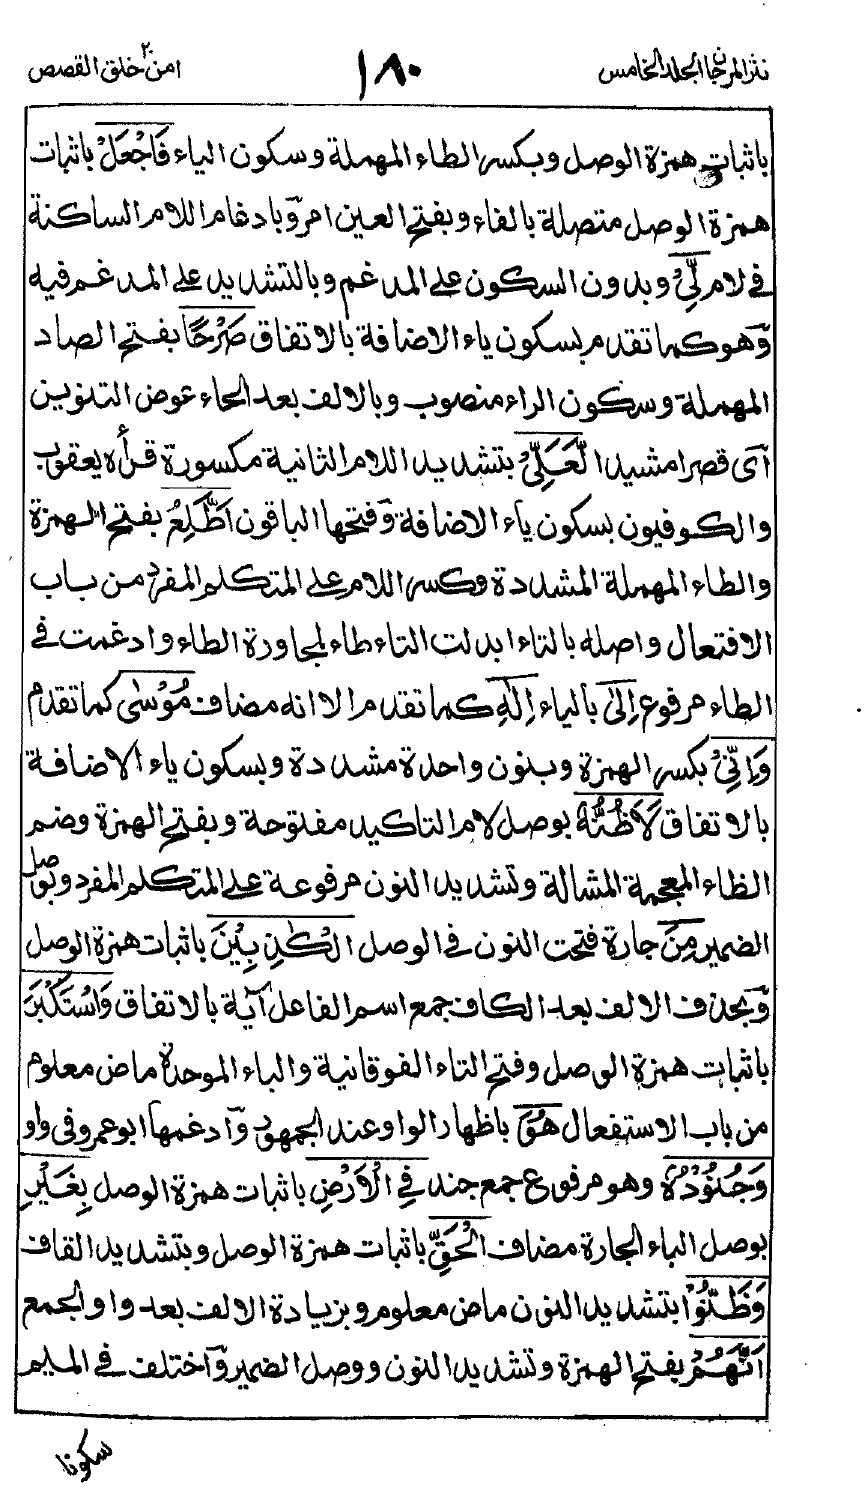 نثر المرجان الجلد الخامس
١٨٠
امن خلق ٢٠ القصص
باثبات همزة الوصل وبكسر الطاء المهملة وسكون الياء فَاجْعَلْ باثبات
همزة الوصل متصلة بالفاء وبفتح العين امر وّبادغام اللام الساكنة
في لام لِّيْ وبدون السكون على المدغم وبالتشديد على المدغم فيه
وّهو كما تقدم بسكون ياء الاضافة بالاتفاق صَرْحًا بفتح الصاد
المهملة وسكون الراء منصوب وبالالف بعد الحاء عوض التنوين
اَى قصرا مشيدا لَّعَلِّيْ بتشديد اللام الثانية مكسورة قرأه يعقوب
والكوفيون بسكون ياء الاضافة وّفتحها الباقون اَطَّلِعُ بفتح الهمزة
والطاء المهملة المشددة وكسر اللام على المتكلم المفرد من باب
الافتعال واصله بالتاء ابدلت التاء طاء لمجاورة الطاء وادغمت في
الطاء مرفوع اِلىٰ بالياء اِلٰهِ كما تقدم الا انه مضاف مُوْسٰى كما تقدم
وَاِنِّيْ بكسر الهمزة وبنون واحدة مشددة وبسكون ياء الاضافة
بالاتفاق لَاَظُنُّهٗ بوصل لام التاكيد مفتوحة وبفتح الهمزة وضم
الظاء المعجمة المشالة وتشديد النون مرفوعة على المتكلم المفرد وبوصل
الضمير مِنَ جارة فتحت النون في الوصل الْكٰذِبِيْنَ باثبات همزة الوصل
وّبحذف الالف بعد الكاف جمع اسم الفاعل آية بالاتفاق وَاسْتَكْبَرَ
باثبات همزة الوصل وفتح التاء الفوقانية والباء الموحدة ماض معلوم
من باب الاستفعال هُوَ باظهار الواو عند الجمهور وّادغمها ابو عمرو في واو
وَجُنُوْدُهٗ وهو مرفوع جمع جند فِي الْاَرْضِ باثبات همزة الوصل بِغَيْرِ
بوصل الباء الجارة مضاف الْحَقِّ باثبات همزة الوصل وبتشديد القاف
وَظَنُّوْا بتشديد النون ماض معلوم وبزيادة الالف بعد واو الجمع
اَنَّهُمْ بفتح الهمزة وتشديد النون ووصل الضمير وّاختلف في الميم
سكونا